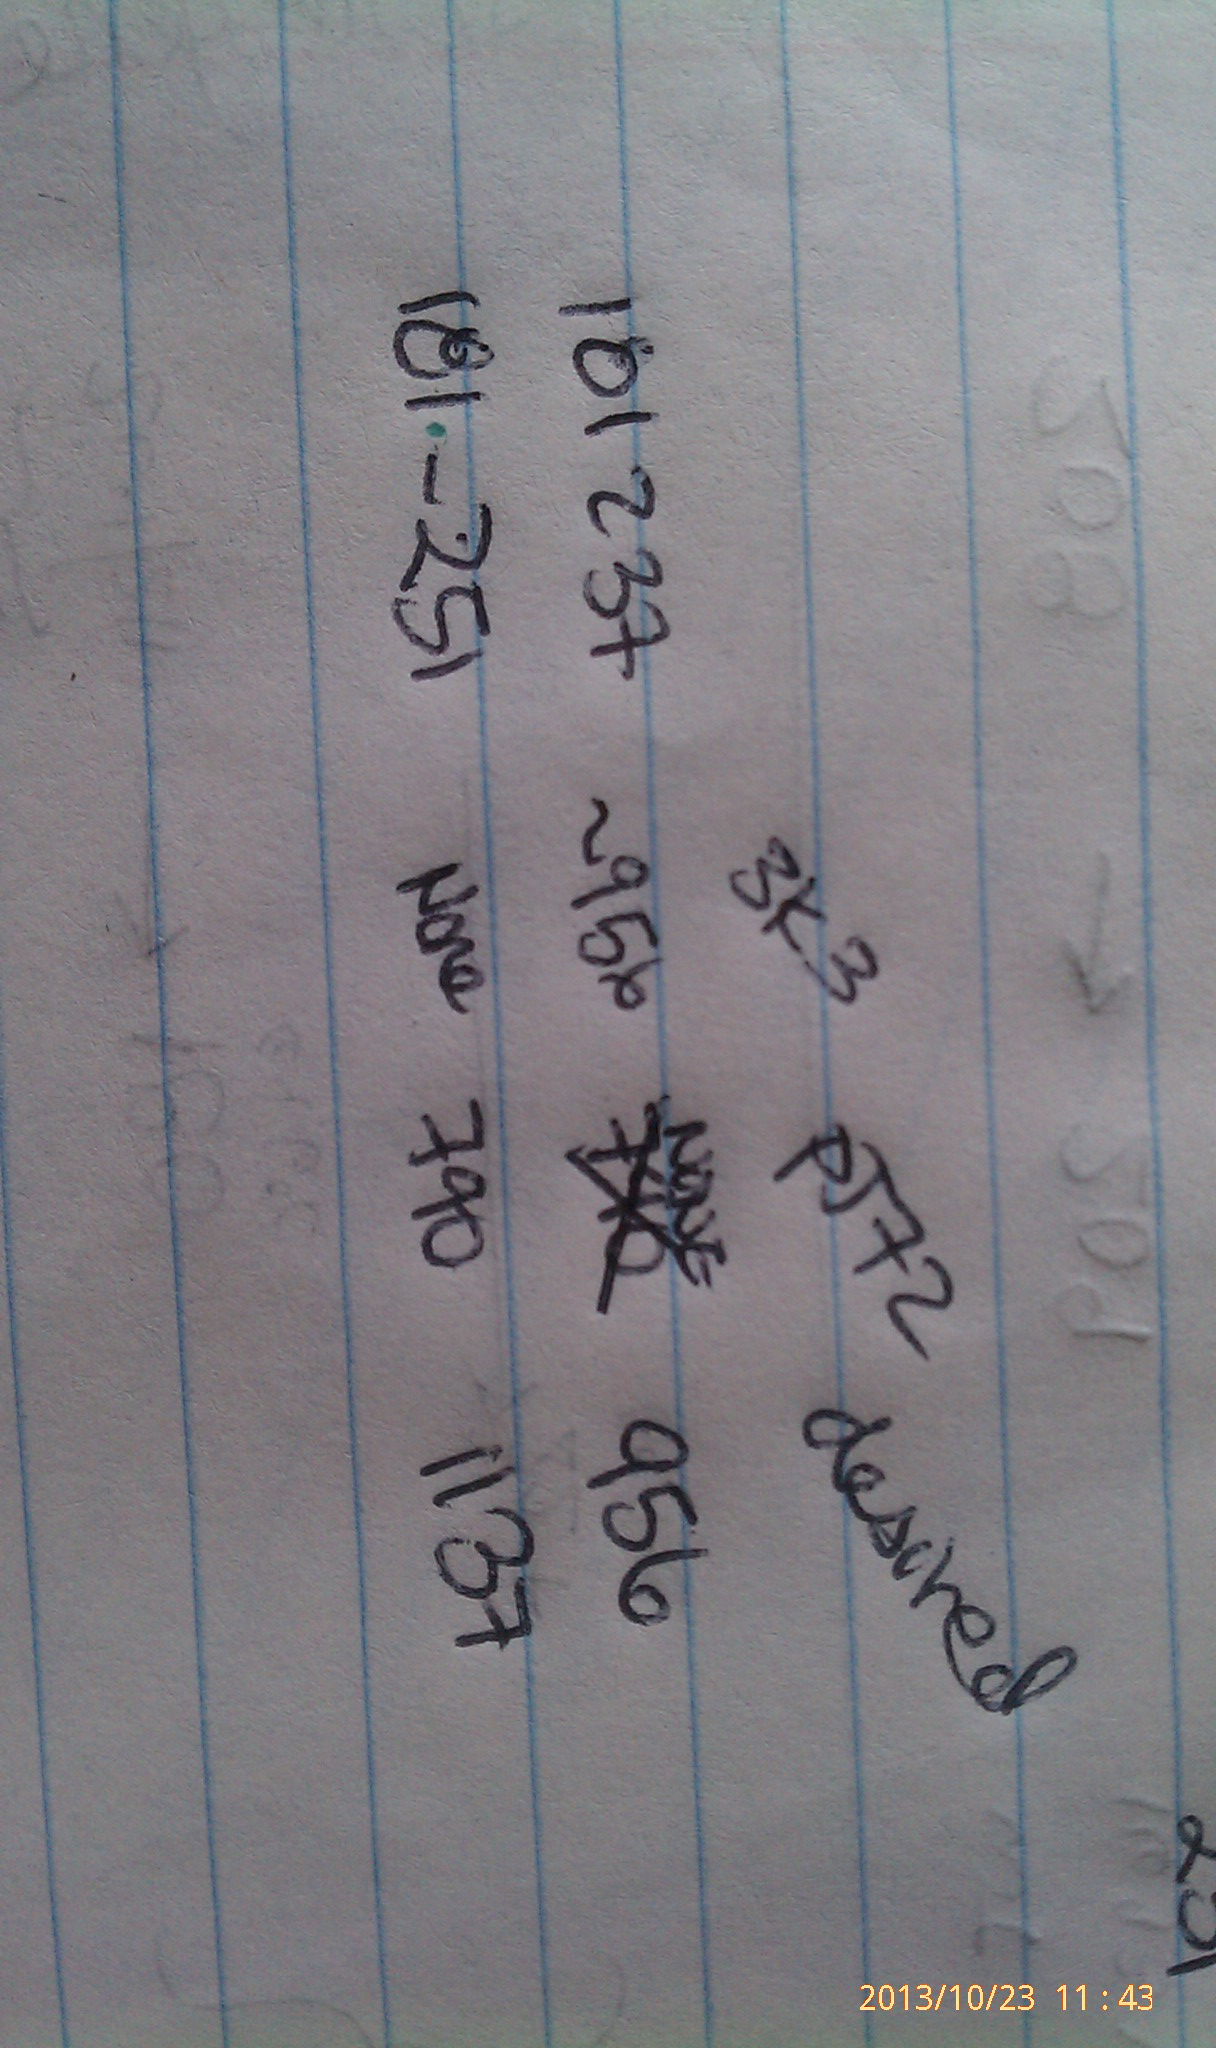 3K3 PJ72 desired
101 237 ~956 NONE 956
181-251 None 790 1137
251
2013/10/23 11:43